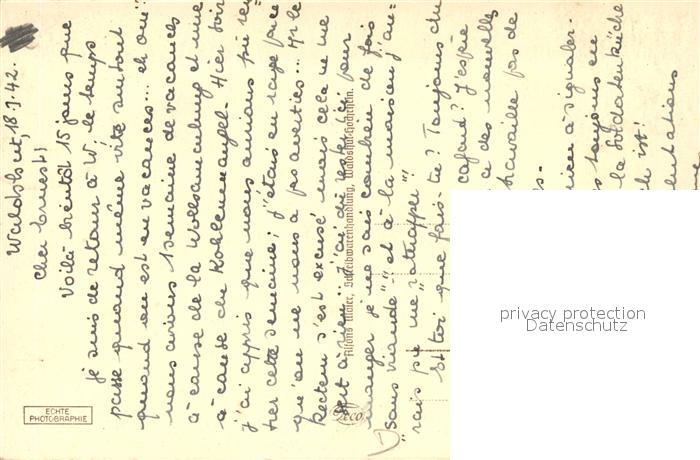 Waldshut, 18.1.42.
Cher Ernest!
Voilà bientôt 15 jours que
je suis de retour à W. le temps
passe quand même vite surtout
quand on est en vacances... et oui
nous avions 1 semaine de vacances
à cause de la Wollsammlung et une
à cause du Kohlenmangel. Hier soir
j'ai appris que nous aurions pu res-
ter cette semaine; j'étais en rage parce
qu'on ne nous a pas averties... Mr le
Recteur s'est excusé mais cela ne me
sert à rien.. J'ai dû rester ici pour
manger je ne sais combien de fois
"sans viande" et à la maison j'au-
"rais pu me rattraper!"
Et toi que fais-tu? Toujours du
cafard? J'espère
des nouvelles
travaille pas de
rien à signaler.
toujours en
la Soldatenküche
est!
Alfons Maier, Schreibwarenhandlung, Waldshut-Hochrhein.
ECHTE
PHOTOGRAPHIE
privacy protection
Datenschutz